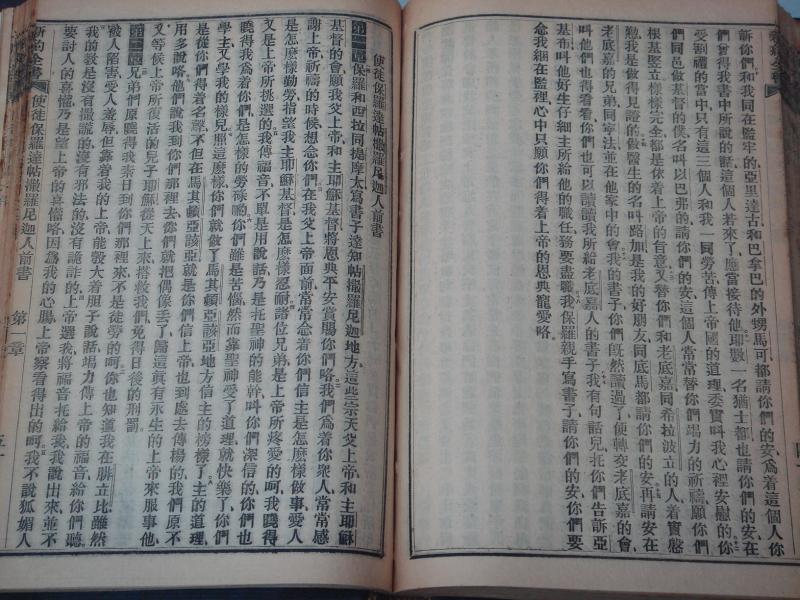 新約全書
訴你們和我同在監牢的亞里達古和巴拿巴的外甥馬可都請你們的安爲着這個人你
們曾得我書中所說的話這個人若來了應當接待他耶數一名猶士都也請你們的安在
受割禮的當中只有這三個人和我一同勞苦傳上帝國的道理委實叫我心裡安慰的你
們同邑做基督的僕名叫以巴弗的請你們的安這個人常常替你們竭力的祈禱願你們
根基竪立樣樣完全都是依着上帝的旨意又替你們和老底嘉同希拉波立的人着實慇
懃我是做得見證的做醫生的名叫路加是我的好朋友同底馬都請你們的安再請安在
老底嘉的兄弟同寧法並在他家中的會我的書子你們旣然讀過了便轉交老底嘉的會
叫他們也得看看你們也可以讀讀我所給老底嘉人的書子我有句話兒托你們告訴亞
基布叫他好生仔細主所給他的職任務要盡職我保羅親手寫書子請你們的安你們要
念我綑在監裡心中只願你們得着上帝的恩典寵愛咯
使徒保羅達帖撒羅尼迦人前書
第一章保羅和西拉同提摩太寫書子達知帖撒羅尼迦地方這些崇天父上帝和主耶穌
基督的會願我父上帝和主耶穌基督將恩典平安賞賜你們咯我們爲着你衆人常常感
謝上帝祈禱的時候想念你們在我父上帝面前常常念着你們信主是怎麽樣做事愛人
是怎麽樣勤勞指望我主耶穌基督是怎麽樣忍耐諸位兄弟是上帝所疼愛的呵我曉得
又是上帝所挑選的我傳福音不單是用說話乃是托聖神的能幹叫你們深信的你們也
曉得我爲着你們是怎樣的勞祿喲你們雖是苦惱然而靠聖神受了道理就快樂了你們
學主又學我的樣兒照這麽樣你們就做了馬其頓亞該亞地方信主的榜樣了主的道理
是從你們得着名聲不但在馬其頓亞該亞就是你們信上帝也到處去傳楊的我們原不
用多說喀他們說我到你們那裡去你們就把偶像丟了歸這眞有永生的上帝來服事他
又等候上帝所復活的兒子耶穌從天上來搭救我們免得日後的刑罰
第二章兄弟們原曉得我來日到你們那裡來不是徒勞的呵你也知道我在腓立比雖然
被人陷害受人羞辱但靠着我的上帝能彀大着胆子說話竭力傳上帝的福音給你們聽
我前殼是沒有撒謊的沒有邪法的沒有詭詐的上帝選我將福音托給我我說出來並不
要討人的喜懽乃是望上帝的喜懽咯因爲我的心腸上帝察看得出的呵我不說狐媚人
新約全書
使徒保羅達帖撒羅尼迦人前書
第二章